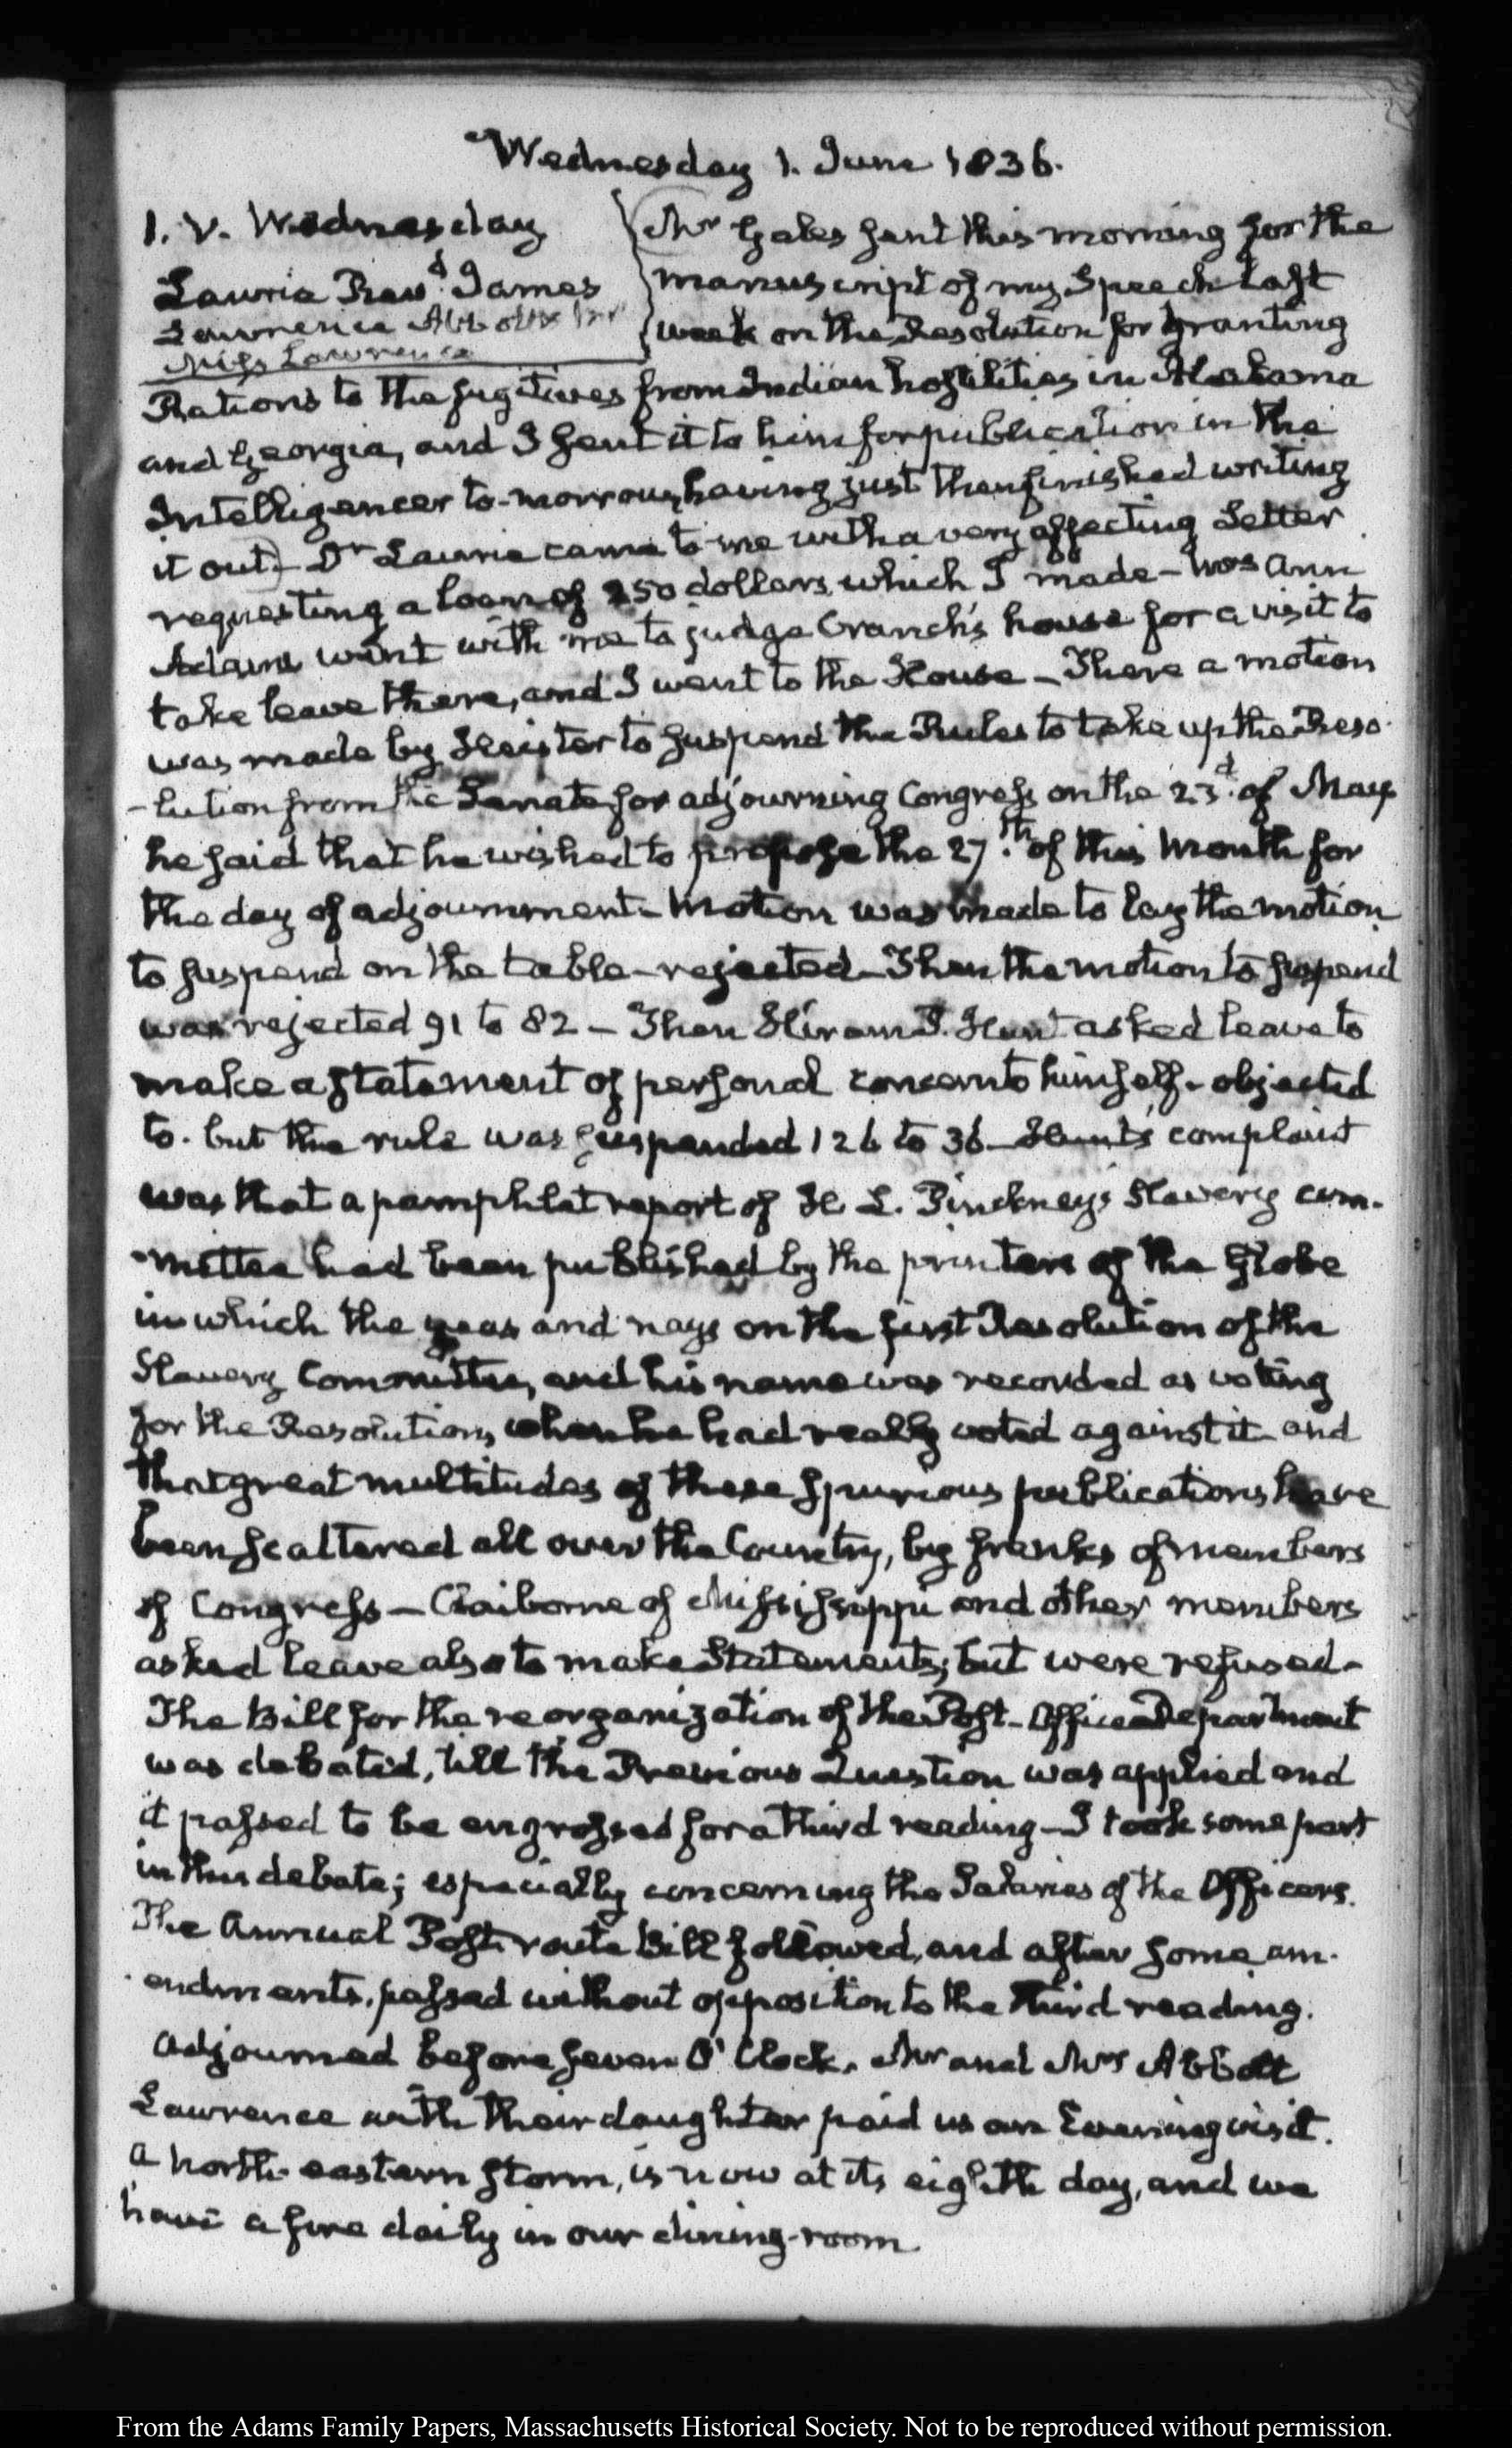 Wednesday 1. June 1836.
1. V. Wednesday
Laurie Revd. James
Lawrence Abbott
Miss Lawrence
Mr Gales sent this morning for the
manuscript of my Speech last
week on the Resolution for granting
Rations to the fugitives from Indian hostilities in Alabama
and Georgia, and I sent it to him for publication in the
Intelligencer to-morrow, having just then finished writing
it out) - Dr Laurie came to me with a very affecting Letter
requesting a loan of 250 dollars, which I made - Mrs Ann
Adams went with me to judge Cranch's house for a visit to
take leave there, and I went to the House - There a motion
was made by Heister to suspend the Rules to take up the Reso-
-lution from the Senate for adjourning Congress on the 23d. of May
he said that he wished to propose the 27.th of this Month for
the day of adjournment - Motion was made to lay the motion
to suspend on the table - rejected - Then the motion to suspend
was rejected 91 to 82 - Then Hiram P. Hunt asked leave to
make a statement of personal concern to himself - objected
to. but the rule was suspended 126 to 36 - Hunt's complaint
was that a pamphlet report of H. L. Pinckney's Slavery com-
-mittee had been published by the printers of the Globe
in which the yeas and nays on the first Resolution of the
Slavery Committee, and his name was recorded as voting
for the Resolution, when he had really voted against it - and
that great multitudes of these spurious publications have
been scattered all over the Country, by franks of members
of Congress - Claiborne of Mississippi and other members
asked leave also to make Statements; but were refused -
The Bill for the reorganization of the Post-Office Department
was debated, till the Previous Question was applied and
it passed to be engrossed for a third reading - I took some part
in this debate; especially concerning the Salaries of the Officers.
The Annual Post-route Bill followed, and after some am-
-endments, passed without opposition to the third reading.
Adjourned before seven O'Clock. Mr and Mrs Abbott
Lawrence with their daughter paid us an Evening visit.
A north-eastern storm, is now at its eighth day, and we
have a fire daily in our dining-room
From the Adams Family Papers, Massachusetts Historical Society. Not to be reproduced without permission.